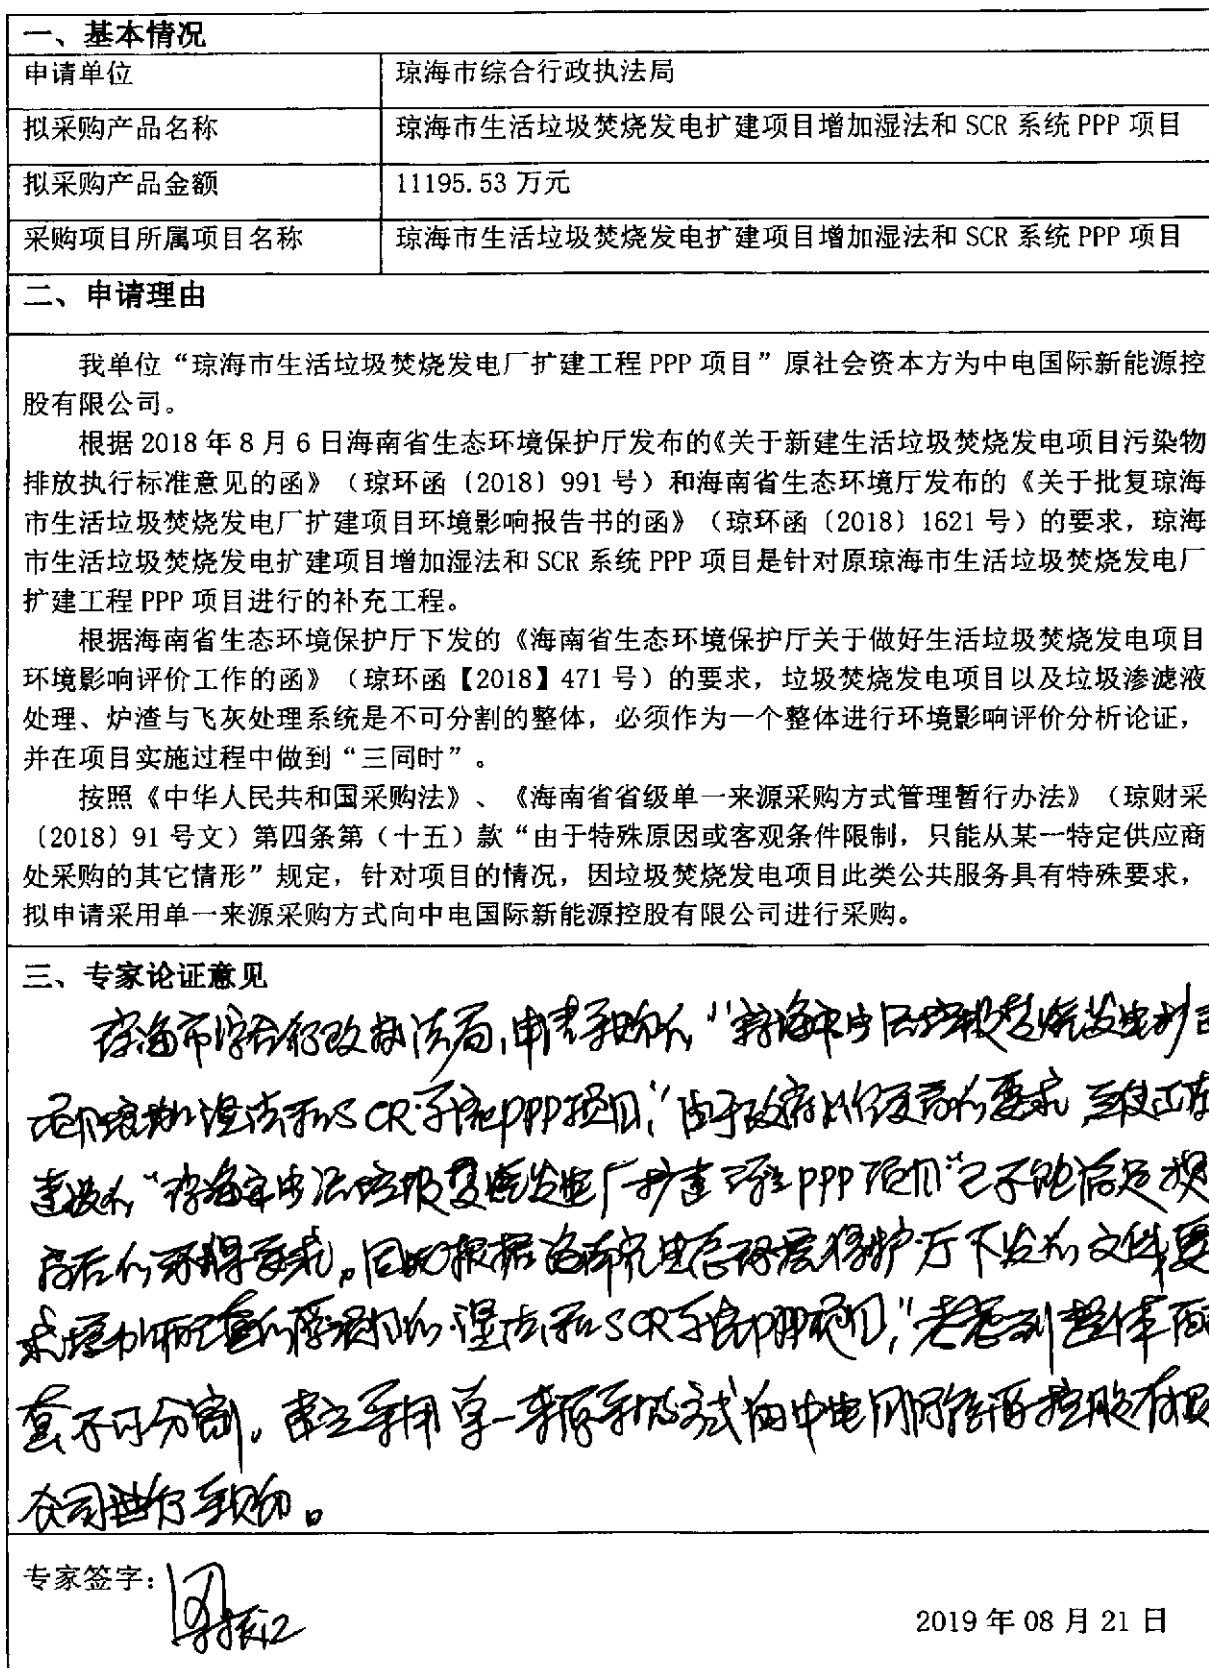 一、基本情况
申请单位 琼海市综合行政执法局
拟采购产品名称 琼海市生活垃圾焚烧发电扩建项目增加湿法和 SCR 系统 PPP 项目
拟采购产品金额 11195.53 万元
采购项目所属项目名称 琼海市生活垃圾焚烧发电扩建项目增加湿法和 SCR 系统 PPP 项目
二、申请理由
我单位“琼海市生活垃圾焚烧发电厂扩建工程 PPP 项目”原社会资本方为中电国际新能源控
股有限公司。
根据 2018 年 8 月 6 日海南省生态环境保护厅发布的《关于新建生活垃圾焚烧发电项目污染物
排放执行标准意见的函》（琼环函〔2018〕991 号）和海南省生态环境厅发布的《关于批复琼海
市生活垃圾焚烧发电厂扩建项目环境影响报告书的函》（琼环函〔2018〕1621 号）的要求，琼海
市生活垃圾焚烧发电扩建项目增加湿法和 SCR 系统 PPP 项目是针对原琼海市生活垃圾焚烧发电厂
扩建工程 PPP 项目进行的补充工程。
根据海南省生态环境保护厅下发的《海南省生态环境保护厅关于做好生活垃圾焚烧发电项目
环境影响评价工作的函》（琼环函【2018】471 号）的要求，垃圾焚烧发电项目以及垃圾渗滤液
处理、炉渣与飞灰处理系统是不可分割的整体，必须作为一个整体进行环境影响评价分析论证，
并在项目实施过程中做到“三同时”。
按照《中华人民共和国采购法》、《海南省省级单一来源采购方式管理暂行办法》（琼财采
〔2018〕91 号文）第四条第（十五）款“由于特殊原因或客观条件限制，只能从某一特定供应商
处采购的其它情形”规定，针对项目的情况，因垃圾焚烧发电项目此类公共服务具有特殊要求，
拟申请采用单一来源采购方式向中电国际新能源控股有限公司进行采购。
三、专家论证意见
琼海市综合行政执法局，申请采购的“琼海市生活垃圾焚烧发电扩建
项目增加湿法和SCR系统PPP项目，”由于政府环保更高的要求，
建设的“琼海市生活垃圾焚烧发电厂扩建工程PPP项目”已不能满足提
高后的环保要求。因此根据海南省生态环境保护厅下发的文件要
求增加 的湿法和SCR系统PPP项目，”考虑到整体配
套不可分割，建议采用单一来源采购方式向中电国际新能源控股有限
公司进行采购。
专家签字：
2019 年 08 月 21 日